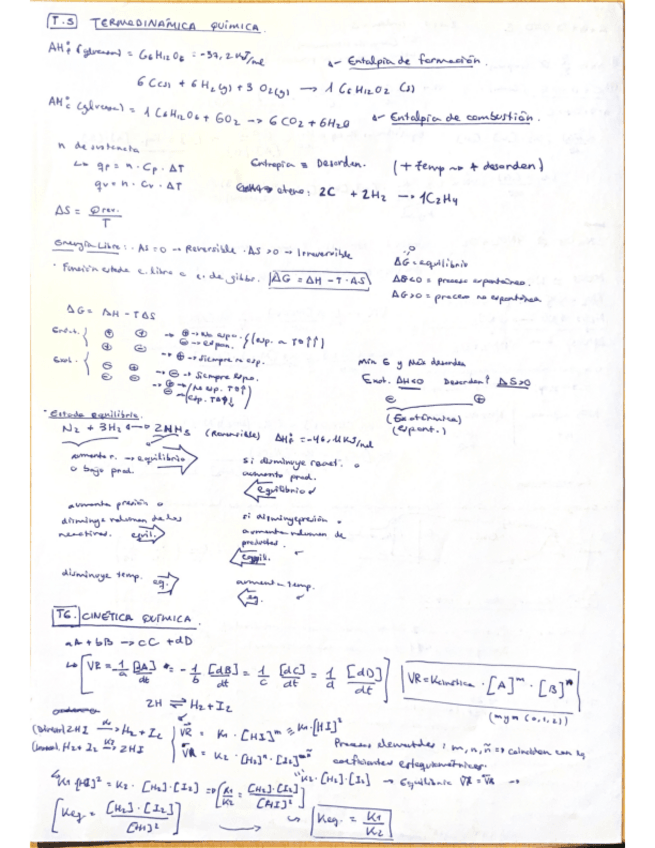 T.5 TERMODINÁMICA QUÍMICA.
ΔHf° (glucosa) = C6H12O6 = -37,2 KJ/mol
Entalpia de formación.
6 C(s) + 6 H2(g) + 3 O2(g) → 1 C6H12O2 (s)
ΔHc° (glucosa) = 1 C6H12O6 + 6O2 → 6 CO2 + 6H2O
Entalpia de combustión.
n de sustancia
qp = n · Cp · ΔT
qv = n · Cv · ΔT
Entropia = Desorden. (+ temp → + desorden)
eteno: 2C + 2H2 → 1C2H4
ΔS = Qrev. / T
Energía Libre: ΔS = 0 → Reversible · ΔS > 0 → Irreversible
· Función estado e. libre o e. de gibbs. ΔG = ΔH - T · ΔS
ΔG = equilibrio
ΔG<0 = proceso espontáneo.
ΔG>0 = proceso no espontánea
ΔG = ΔH - TΔS
Endot. { ⊕ ⊕ → ⊕ → No espo. / ⊖ → espon. } (esp. a Tª ↑↑)
⊕ ⊖ → ⊕ → Siempre no esp.
Exot. { ⊖ ⊕ → ⊖ → Siempre espo.
⊖ ⊖ → ⊕ → (No esp. Tª↑)
⊖ → (esp. Tª↓)
Min G y Máx desorden
Exot. ΔH<0 Desorden↑ ΔS>0
⊖ ⊕
(Exotérmica)
(espont.)
· Estado equilibrio.
N2 + 3H2 ↔ 2NH3 (Reversible) ΔHf° = -46,11 KJ/mol
aumento r. → equilibrio
o bajo prod.
si disminuye react. o
aumento prod.
equilibrio
aumenta presión o
disminuye volumen de los
reactivos. equil.
si disminuye presión o
aumenta volumen de
productos
equil.
disminuye temp. eq.
aumenta temp.
eq.
T6. CINÉTICA QUÍMICA.
aA + bB → cC + dD
VR = 1/a [dA]/dt = - 1/b [dB]/dt = 1/c [dC]/dt = 1/d [dD]/dt
VR = Kcinética · [A]^m · [B]^n
(m y n (0,1,2))
2H ⇌ H2 + I2
(Directa) 2HI →K1 H2 + I2
VR = K1 · [HI]^m = K1 · [HI]²
(Inversa) H2 + I2 →K2 2HI
VR = K2 · [H2]^n · [I2]^ñ
Procesos elementales: m, n, ñ → coinciden con los
coeficientes estequiométricos.
K1 [HI]² = K2 · [H2] · [I2] → K1/K2 = [H2] · [I2] / [HI]²
K2 · [H2] · [I2] → Equilibrio VR = VR →
Keq. = [H2] · [I2] / [HI]²
Keq. = K1 / K2